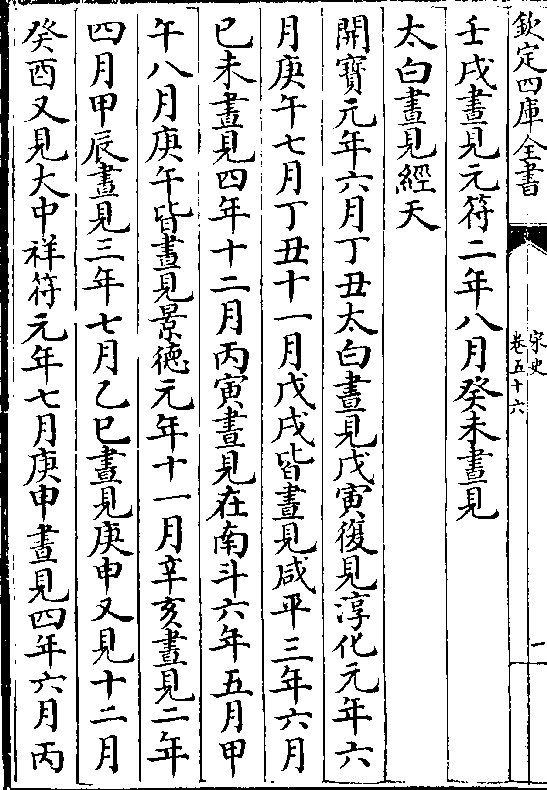 欽定四庫全書
宋史
卷五十六
壬戌晝見元符二年八月癸未晝見
太白晝見經天
開寶元年六月丁丑太白晝見戊寅復見淳化元年六
月庚午七月丁丑十一月戊戌皆晝見咸平三年六月
已未晝見四年十二月丙寅晝見在南斗六年五月甲
午八月庚午皆晝見景德元年十一月辛亥晝見二年
四月甲辰晝見三年七月乙巳晝見庚申又見十二月
癸酉又見大中祥符元年七月庚申晝見四年六月丙